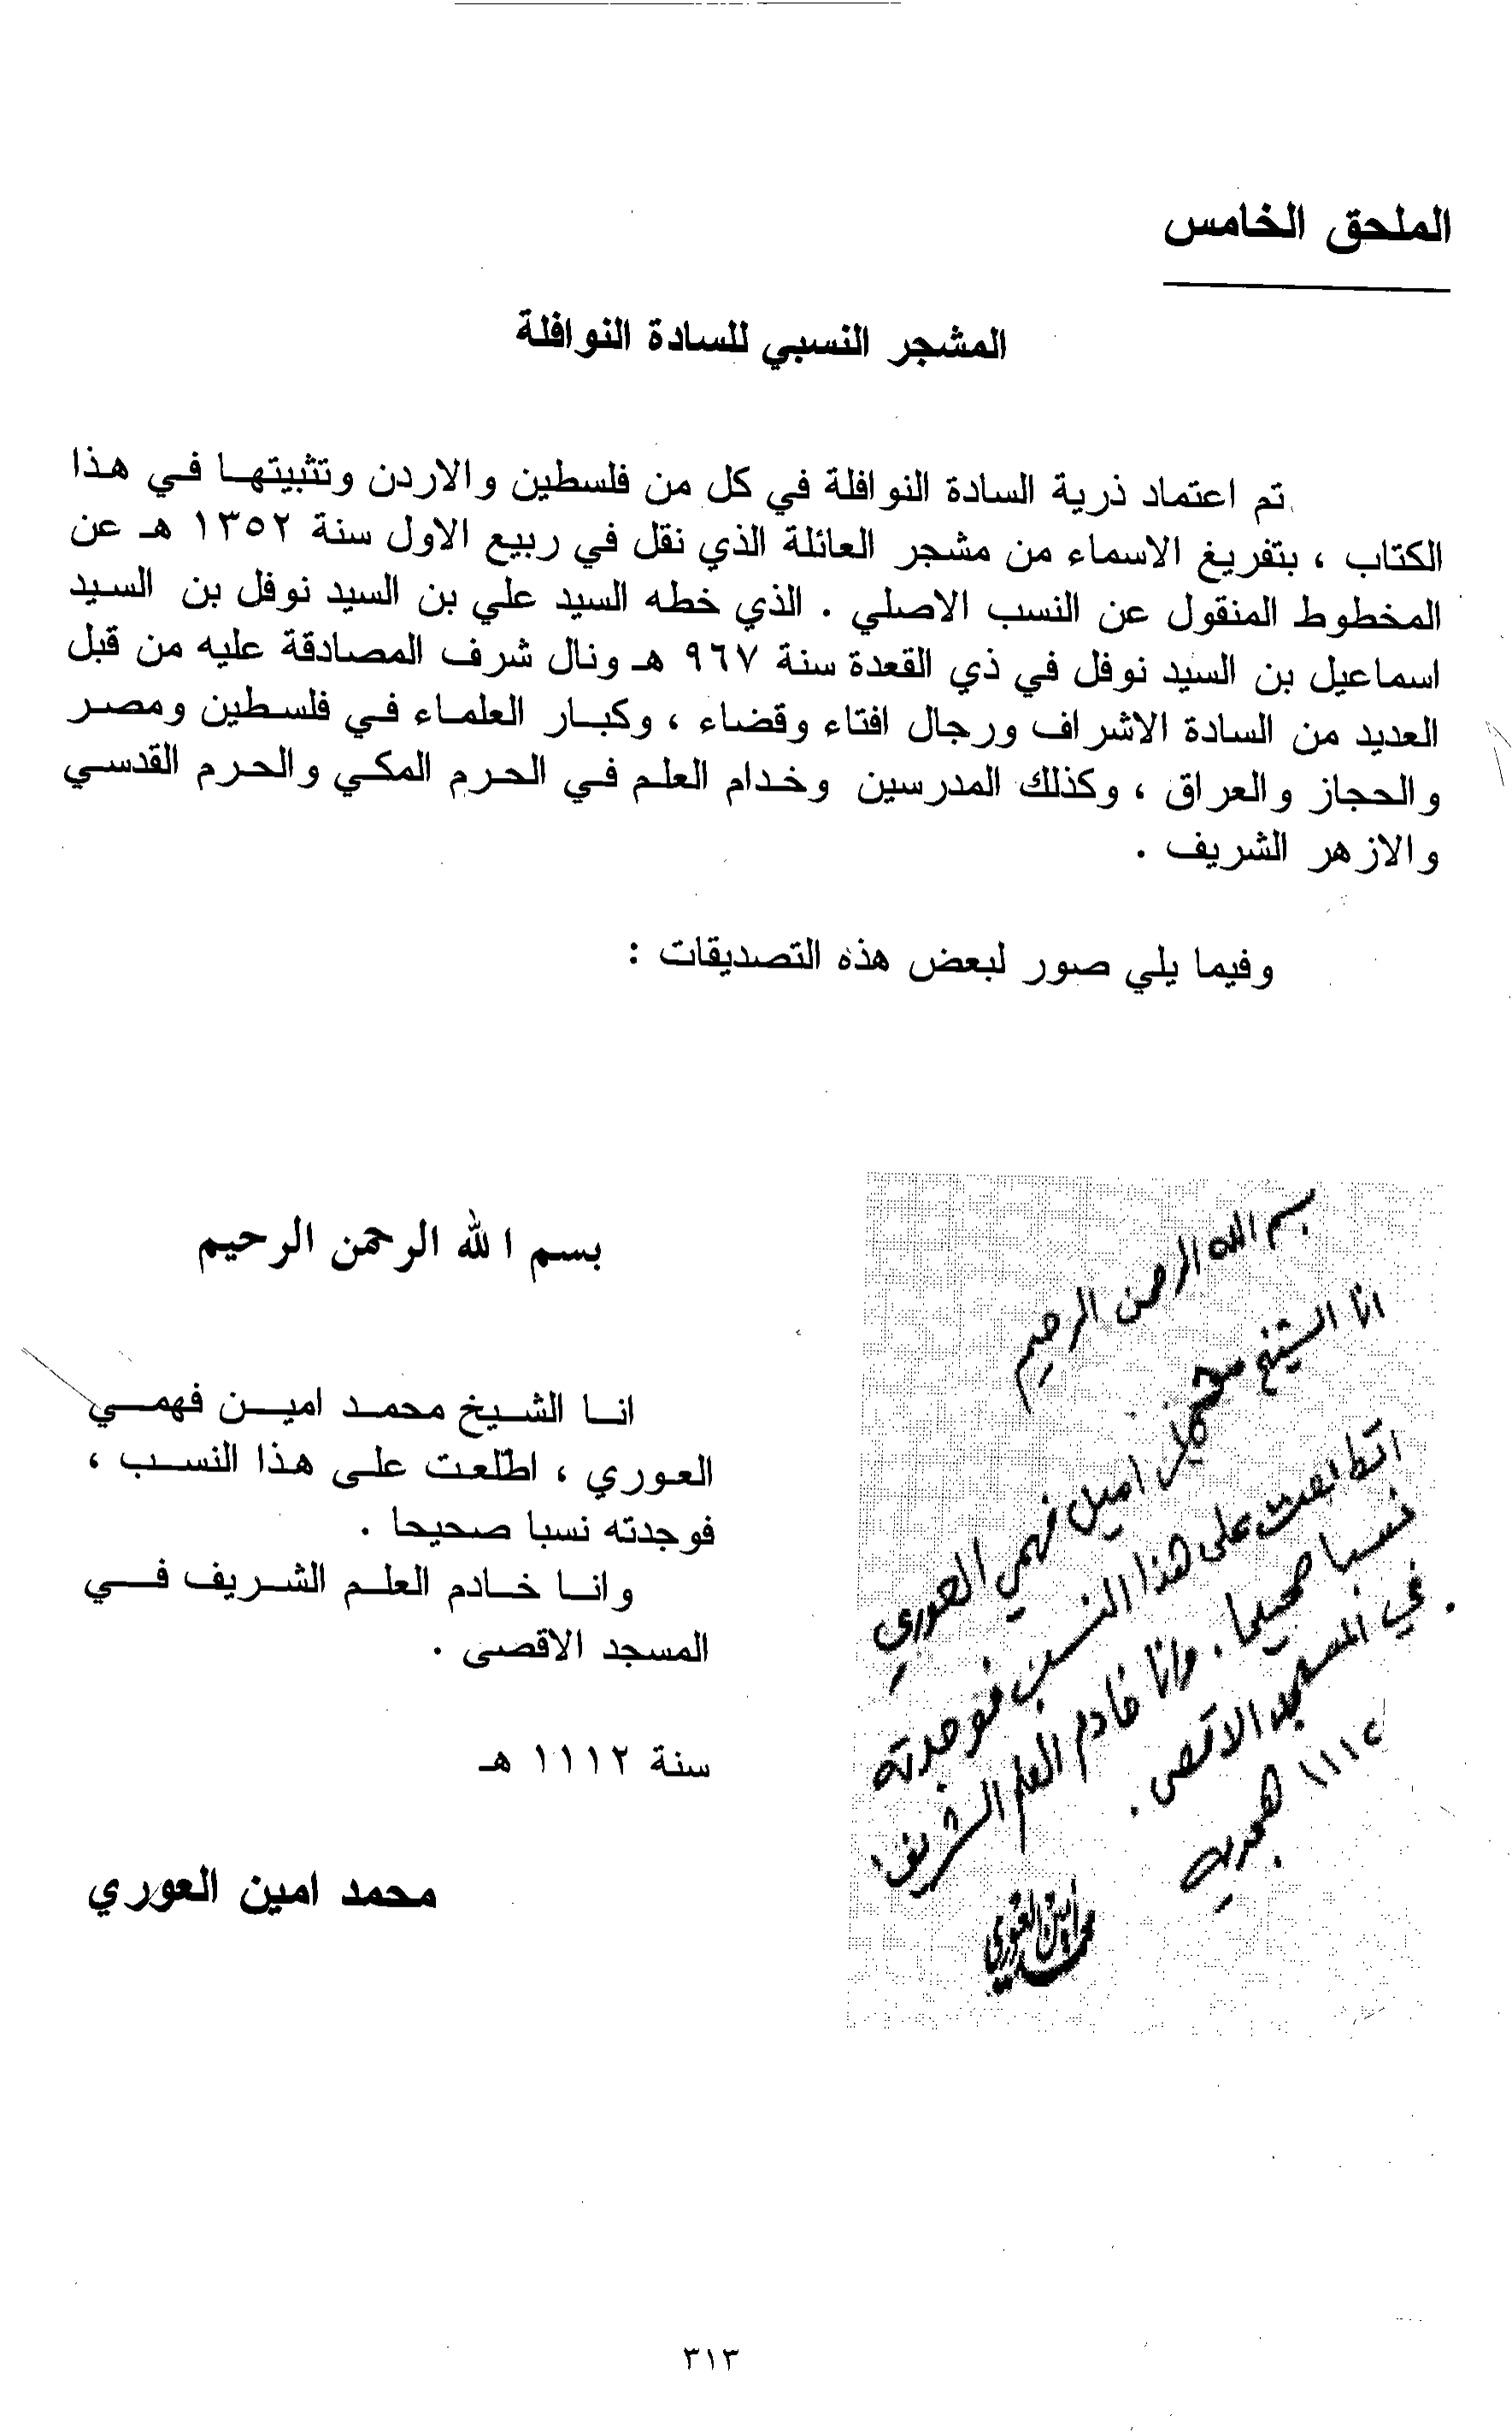 الملحق الخامس
المشجر النسبي للسادة النوافلة
تم اعتماد ذرية السادة النوافلة في كل من فلسطين والاردن وتثبيتها في هذا
الكتاب ، بتفريغ الاسماء من مشجر العائلة الذي نقل في ربيع الاول سنة ١٣٥٢ هـ عن
المخطوط المنقول عن النسب الاصلي . الذي خطه السيد علي بن السيد نوفل بن السيد
اسماعيل بن السيد نوفل في ذي القعدة سنة ٩٦٧ هـ ونال شرف المصادقة عليه من قبل
العديد من السادة الاشراف ورجال افتاء وقضاء ، وكبار العلماء في فلسطين ومصر
والحجاز والعراق ، وكذلك المدرسين وخدام العلم في الحرم المكي والحرم القدسي
والازهر الشريف .
وفيما يلي صور لبعض هذه التصديقات :
بسم الله الرحمن الرحيم
انا الشيخ محمد امين فهمي العوري
اطلعت على هذا النسب فوجدته
نسبا صحيحا . وانا خادم العلم الشريف
في المسجد الاقصى .
١١١٢ هجريه
محمد امين العوري
بسم الله الرحمن الرحيم
انا الشيخ محمد امين فهمي
العوري ، اطلعت على هذا النسب ،
فوجدته نسبا صحيحا .
وانا خادم العلم الشريف في
المسجد الاقصى .
سنة ١١١٢ هـ
محمد امين العوري
٣١٣